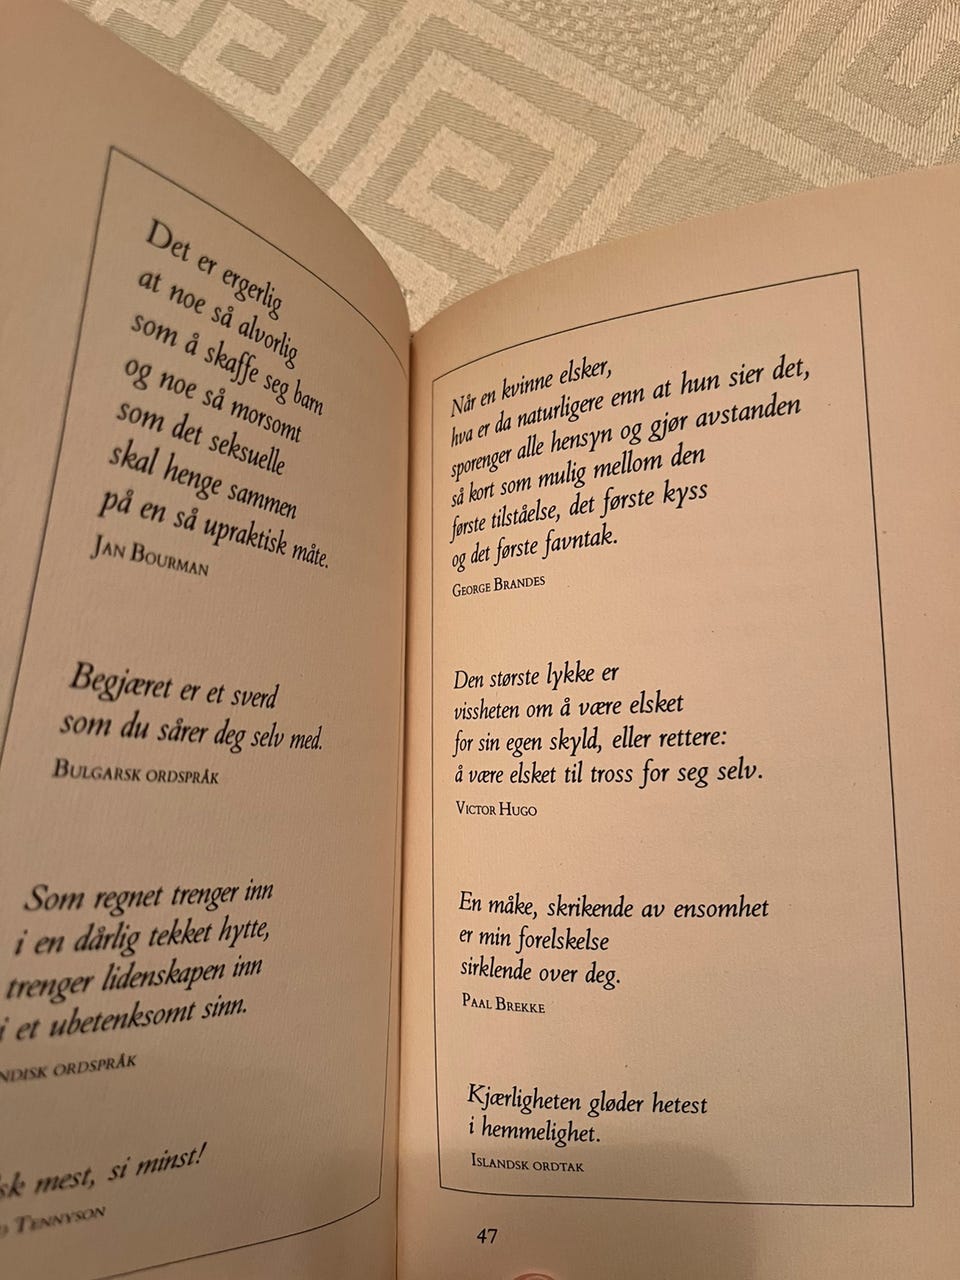 Det er ergerlig
at noe så alvorlig
som å skaffe seg barn
og noe så morsomt
som det seksuelle
skal henge sammen
på en så upraktisk måte.
JAN BOURMAN
Begjæret er et sverd
som du sårer deg selv med.
BULGARSK ORDSPRÅK
Som regnet trenger inn
i en dårlig tekket hytte,
trenger lidenskapen inn
i et ubetenksomt sinn.
ORDSPRÅK
mest, si minst!
TENNYSON
Når en kvinne elsker,
hva er da naturligere enn at hun sier det,
sporenger alle hensyn og gjør avstanden
så kort som mulig mellom den
første tilståelse, det første kyss
og det første favntak.
GEORGE BRANDES
Den største lykke er
vissheten om å være elsket
for sin egen skyld, eller rettere:
å være elsket til tross for seg selv.
VICTOR HUGO
En måke, skrikende av ensomhet
er min forelskelse
sirklende over deg.
PAAL BREKKE
Kjærligheten gløder hetest
i hemmelighet.
ISLANDSK ORDTAK
47